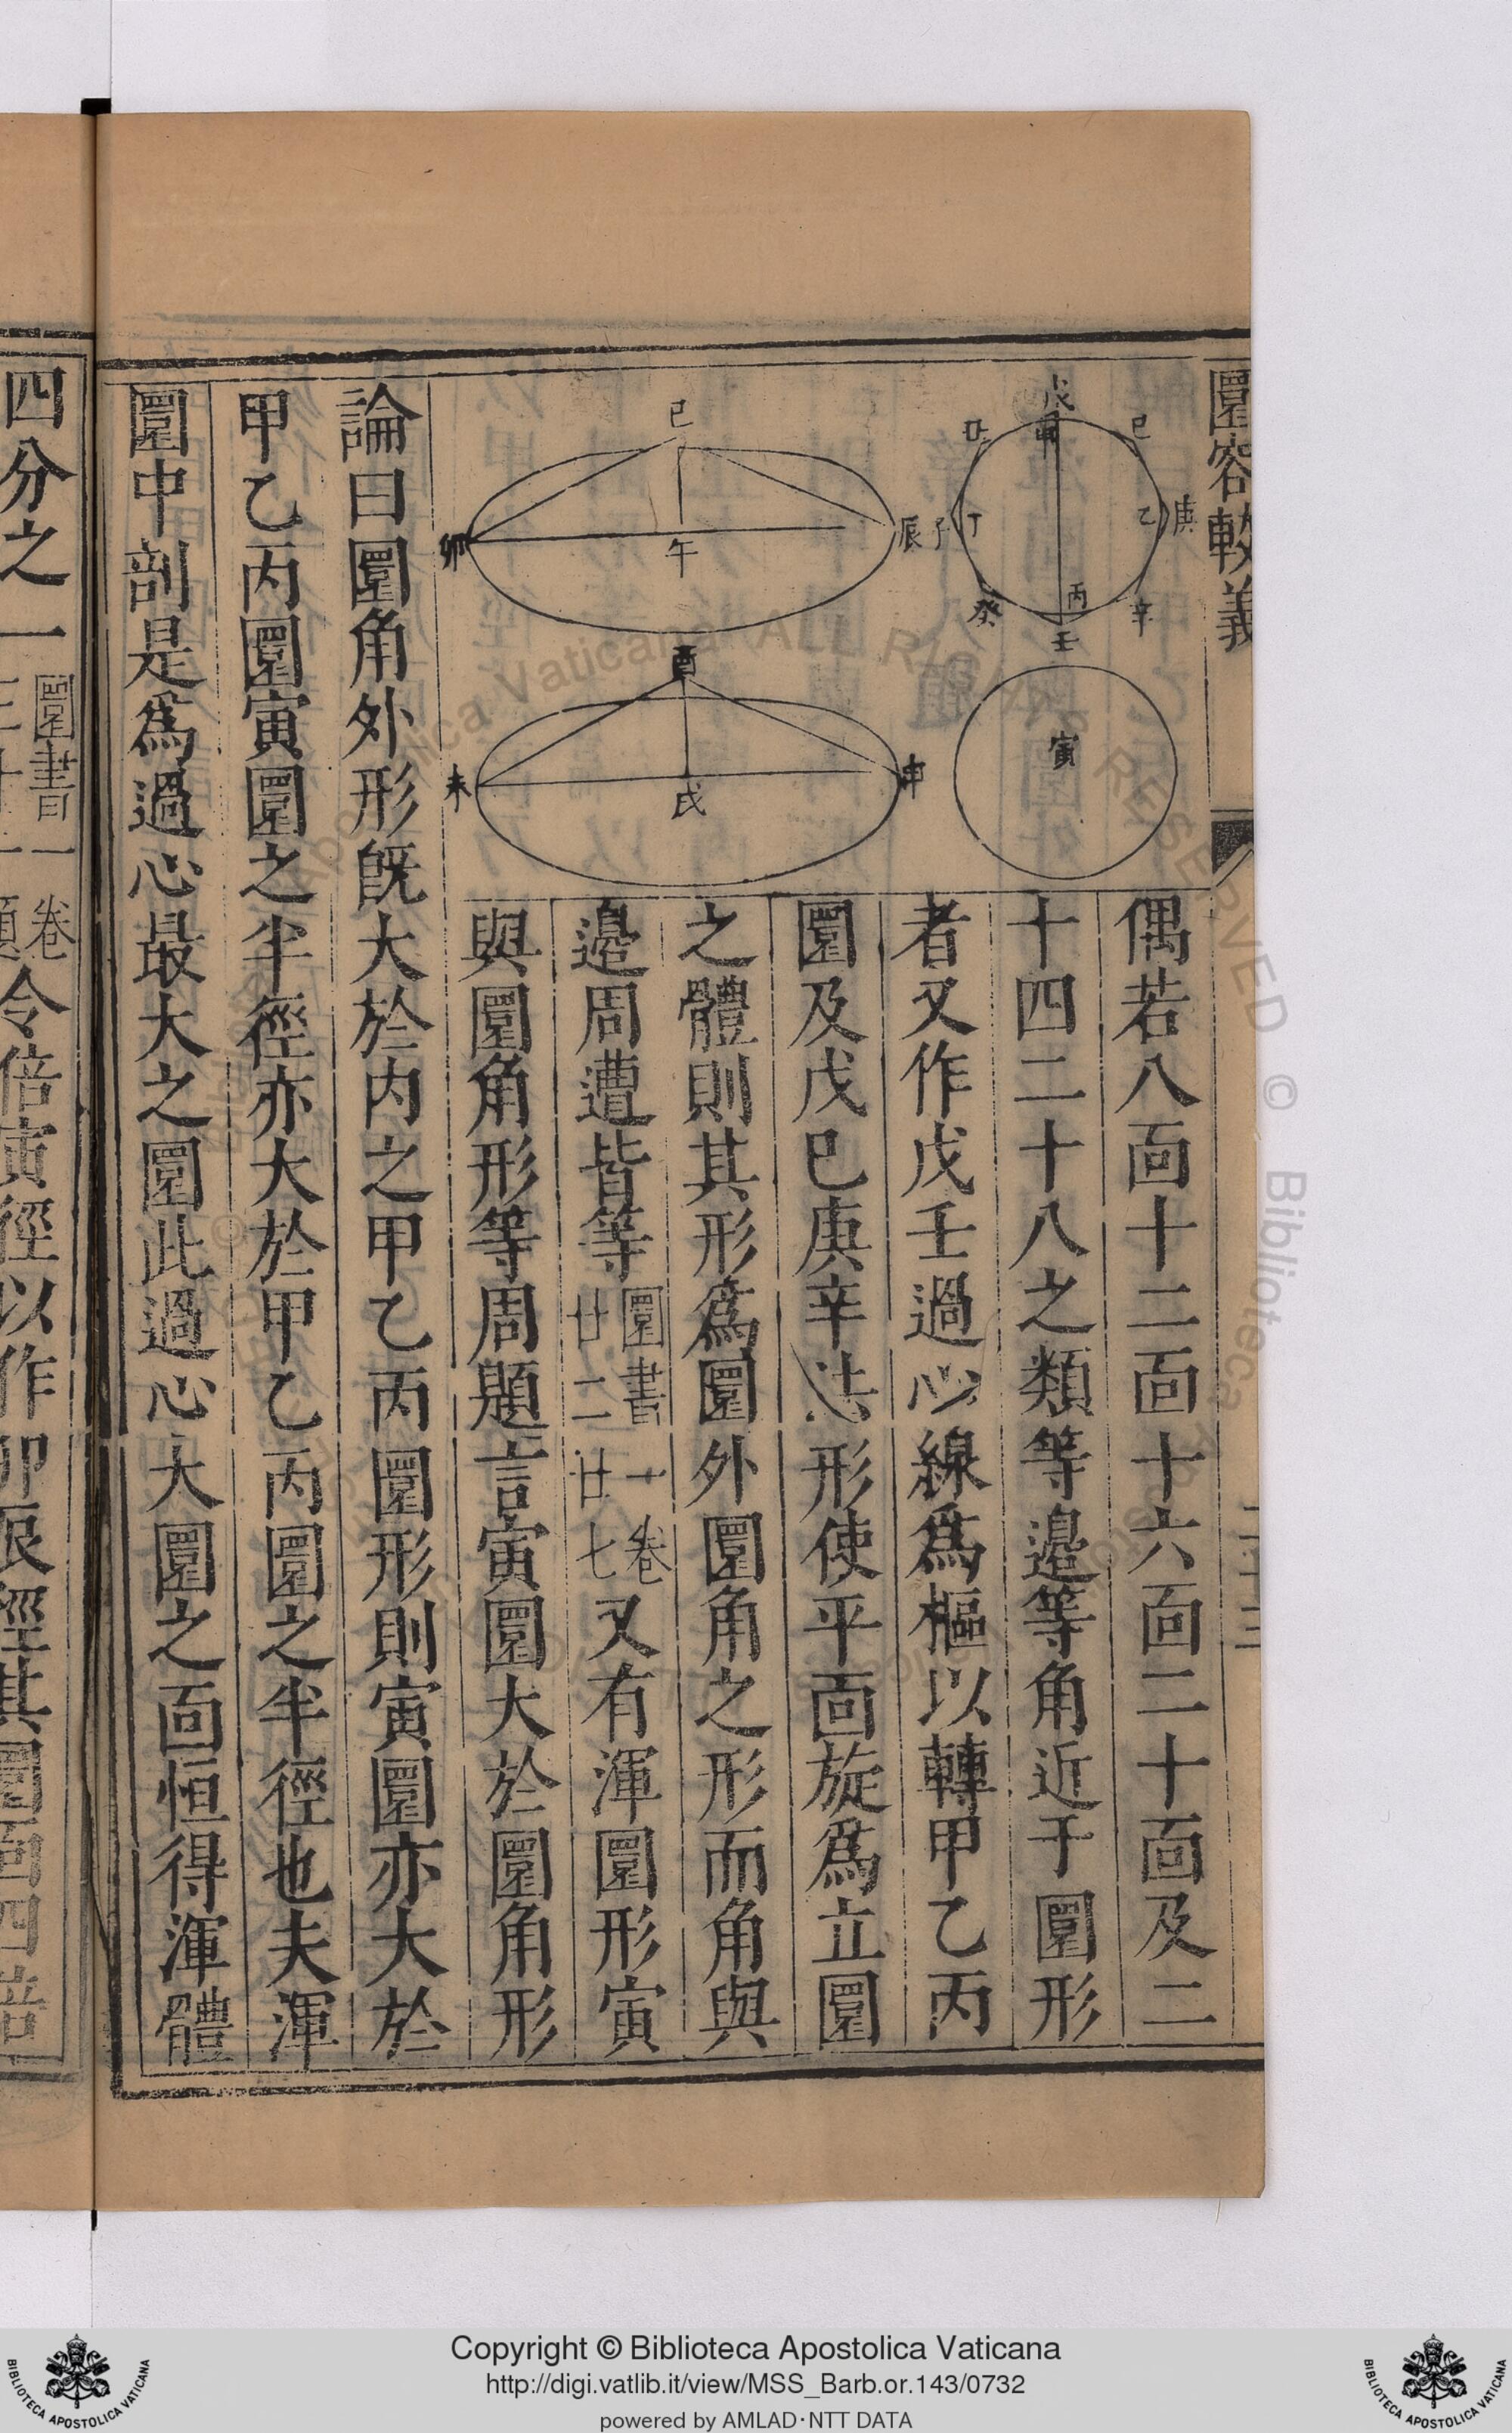 圜容較義
偶若八面十二面十六面二十面及二
十四二十八之類等邉等角近于圜形
者又作戊壬過心線爲樞以轉甲乙丙
圜及戊巳庚辛法形使平面旋爲立圜
之體則其形爲圜外圜角之形而角與
邉周遭皆等圜書十卷廿二廿七又有渾圜形寅
與圜角形等周題言寅圜大於圜角形
論曰圜角外形旣大於内之甲乙丙圜形則寅圜亦大於
甲乙丙圜寅圜之半徑亦大於甲乙丙圜之半徑也夫渾
圜中剖是爲過心最大之圜此過心大圜之面恒得渾體
四分之一圜書一卷三十一題令倍寅徑以作卯辰徑其圜面四倍
戊
甲
巳
丑
庚
乙
丁
子
辛
丙
癸
壬
寅
巳
卯
午
辰
酉
未
戌
申
Copyright © Biblioteca Apostolica Vaticana
http://digi.vatlib.it/view/MSS_Barb.or.143/0732
powered by AMLAD·NTT DATA
BIBLIOTECA APOSTOLICA VATICANA
BIBLIOTECA APOSTOLICA VATICANA